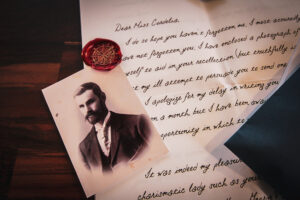 Dear Miss Cordelia,
I do so hope you haven't forgotten me, I most assuredly
have not forgotten you. I have enclosed a photograph of
myself to aid in your recollection (but truthfully is
my all attempt to persuade you to send one
I apologize for my delay in writing you
a month, but I have been
opportunity in which to
It was indeed my pleasure
charismatic lady such as your